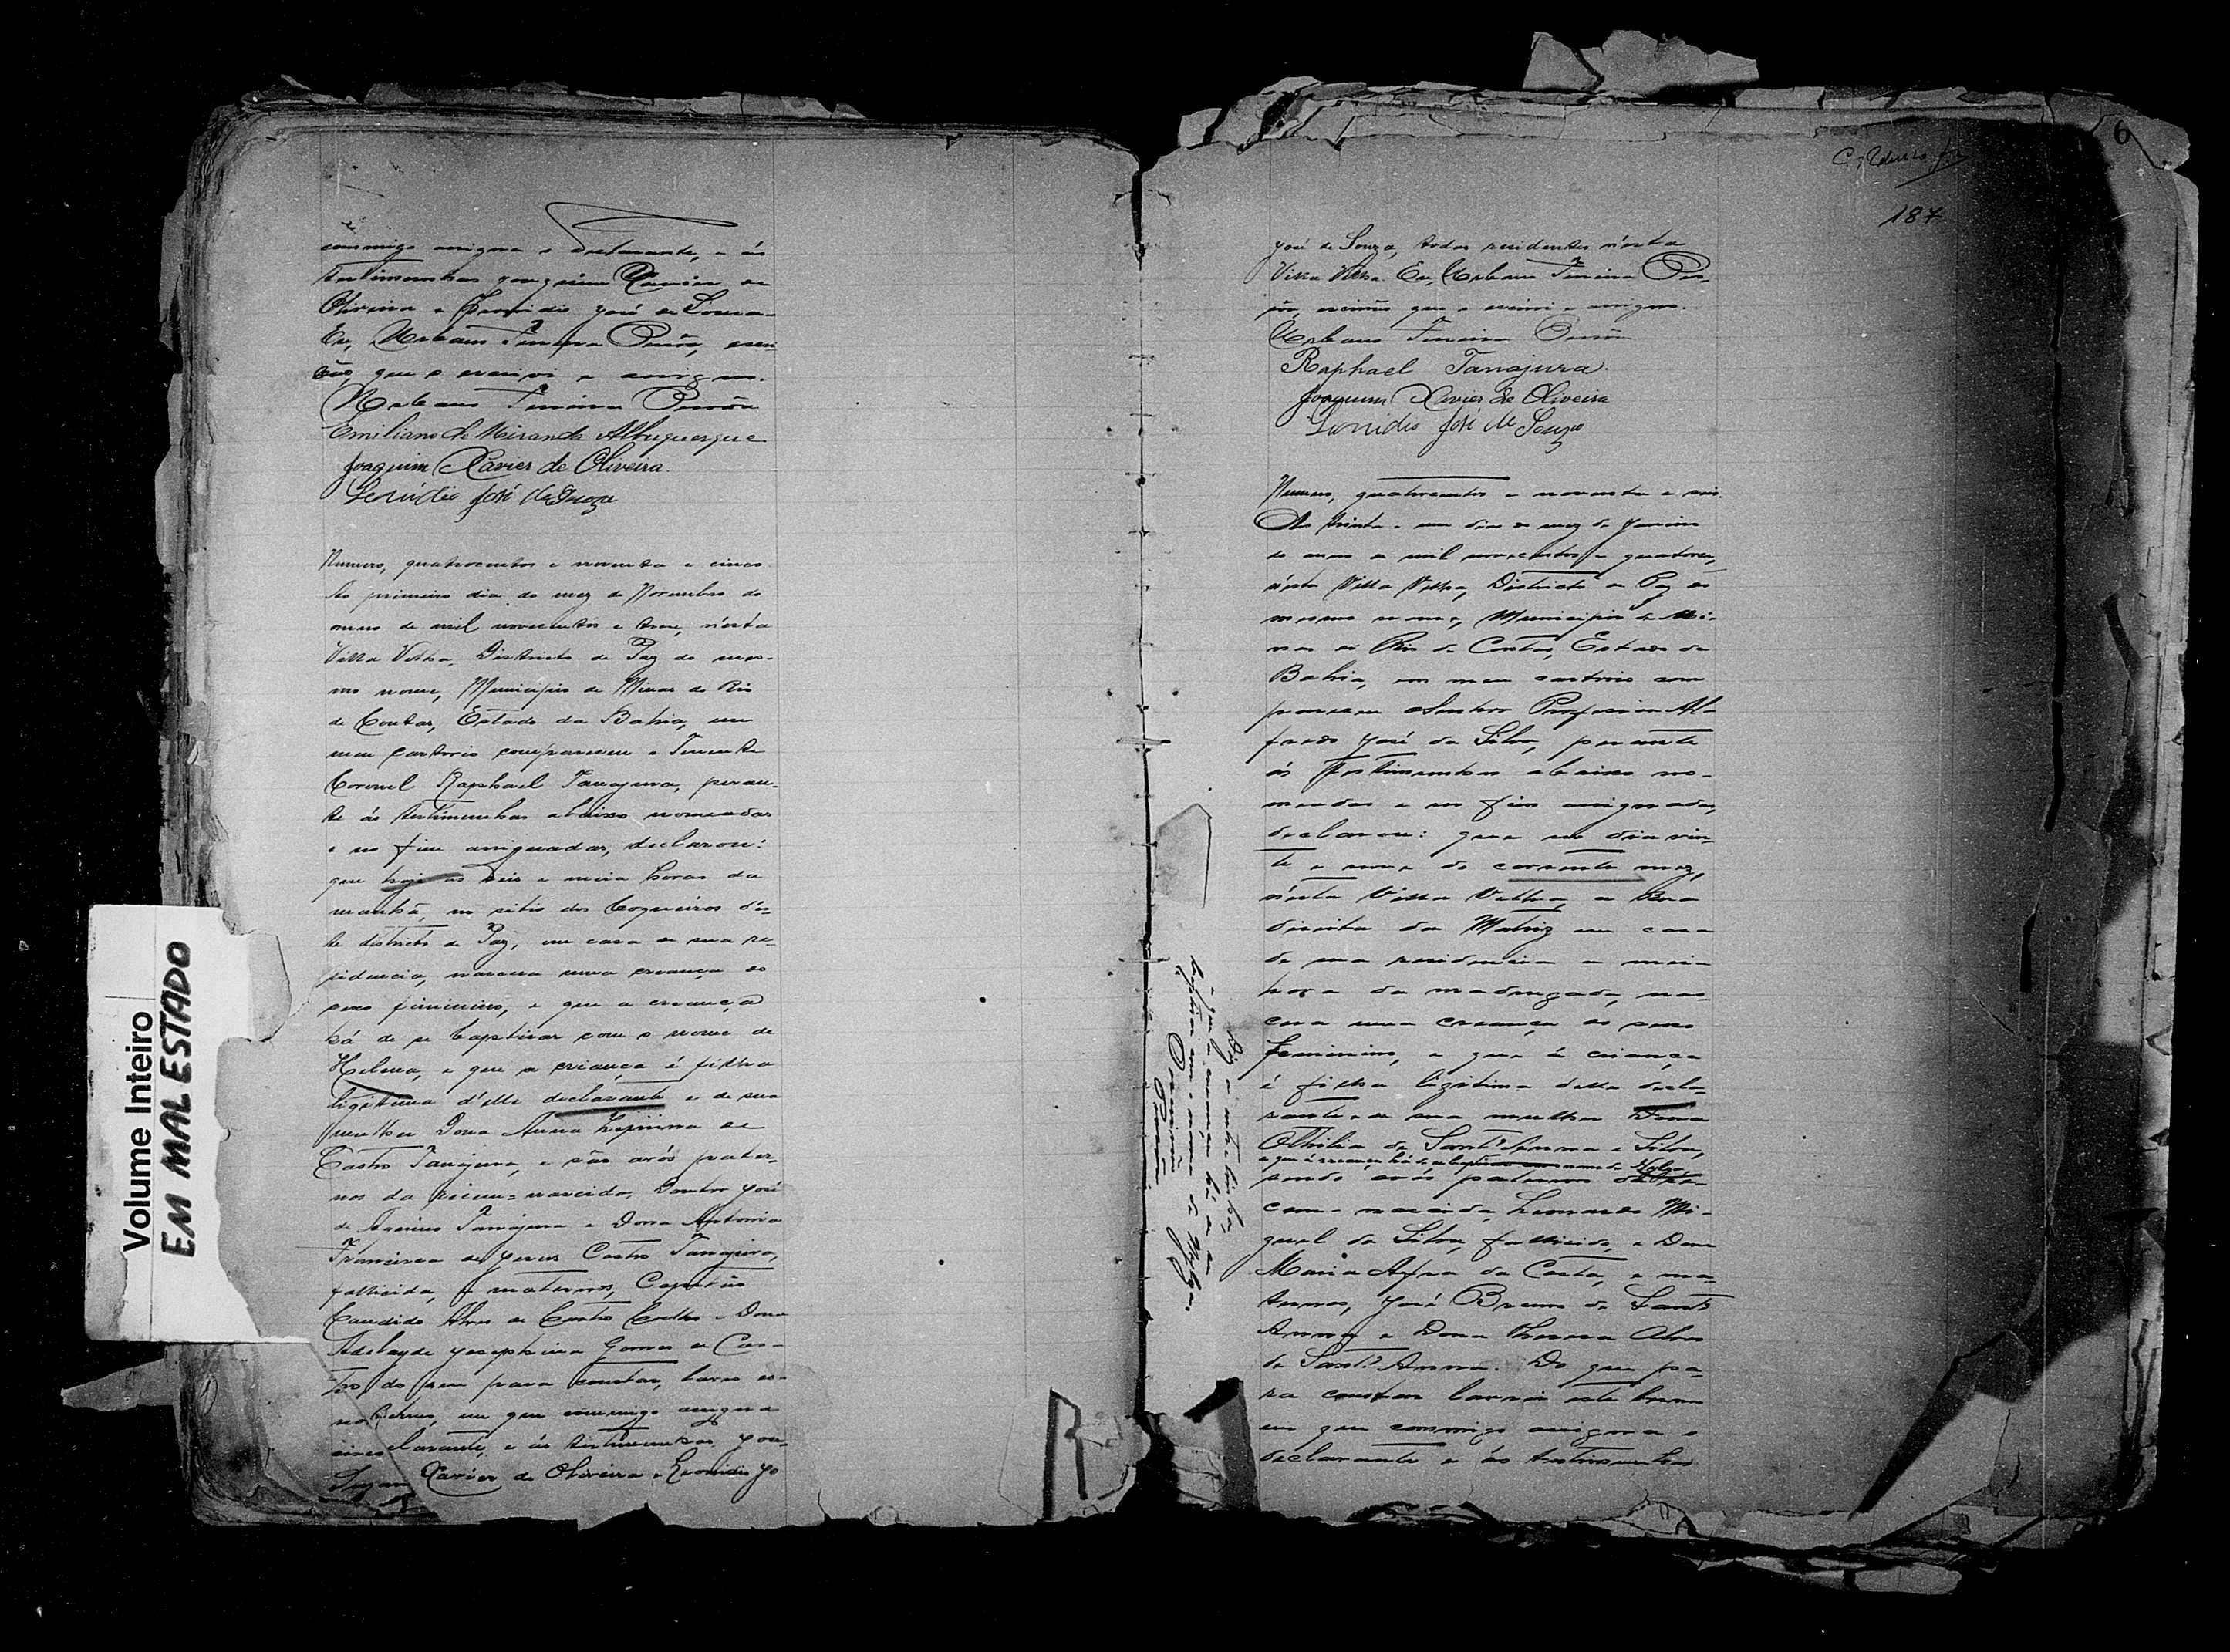 commigo assigna o declarante, e ás
testimunhas Joaquim Xavier de
Oliveira e Leonidio José de Souza.
Eu, Urbano Pereira, escri-
vão, que o escrevi e assigno.
Urbano
Emiliano de Miranda Albuquerque
Joaquim Xavier de Oliveira
Leonidio José de Souza
Numero, quatrocentos e noventa e cinco.
Ao primeiro dia do mez de Novembro do
anno de mil novecentos e treze, n'esta
Villa Velha, Districto de Paz do mes-
mo nome, Municipio de Minas do Rio
de Contas, Estado da Bahia, em
meu cartorio compareceu o Tenente
Coronel Raphael Tanajura, peran-
te ás testimunhas abaixo nomeadas
e no fim assignadas, declarou:
que hoje as seis e meia horas da
manhã, no sitio dos Coqueiros d'es-
te districto de Paz, em casa de sua re-
sidencia, nasceu uma creança do
sexo feminino, e que a creança
há de se baptisar com o nome de
Helena, e que a criança é filha
ligitima d'elle declarante e de sua
mulher Dona Anna de
Castro Tanajura, e são avós pater-
nos da recem-nascida, Doutor José
de Aquino Tanajura e Dona Antonia
Francisca de Jesus Castro Tanajura,
fallicida, e maternos, Capitão
Candido Alves de Castro Coelho e Dona
Adelayde Josephina Gomes de Cas-
tro, do que para constar, lavro es-
em que commigo assigna
clarante, e ás testimunhas, Joa-
Xavier de Oliveira e Leonidio Jo
Volume Inteiro
EM MAL ESTADO
6
187
José de Souza, todos residentes n'esta
Villa Velha. Eu, Urbano
escrivão que o escrevi e assigno.
Urbano
Raphael Tanajura.
Joaquim Xavier de Oliveira
Leonidio José de Souza
Numero, quatrocentos e noventa e seis.
Aos trinta e um dias do mez de Janeiro
do anno de mil novecentos e quatorze,
n'esta Villa Velha, Districto de Paz do
mesmo nome, Municipio de Mi-
nas do Rio de Contas, Estado da
Bahia, em meu cartorio com
pareceu o Senhor Professor Al-
fredo José da Silva, perante
ás testimunhas abaixo no-
meadas e no fim assignadas,
declarou: que no dia vin-
te e nove do corrente mez,
n'esta Villa Velha, a Rua
direita da Matriz em casa
de sua residencia a meia
hora da madrugada, nas-
ceu uma creança do sexo
feminino, e que a criança
é filha ligitima delle decla-
rante e de sua mulher Dona
Othilia de Sant'Anna e Silva,
e que a creança há de se baptisar com o nome de
sendo avós paternos da re-
cem-nascida, Leonardo Mi-
guel da Silva, fallicido, e Dona
Maria da Costa, e ma-
ternos, José Bruno de Sant'
Anna e Dona Alves
de Sant'Anna. Do que pa-
ra constar lavrei este termo
em que commigo assigna o
declarante e ás testimunhas